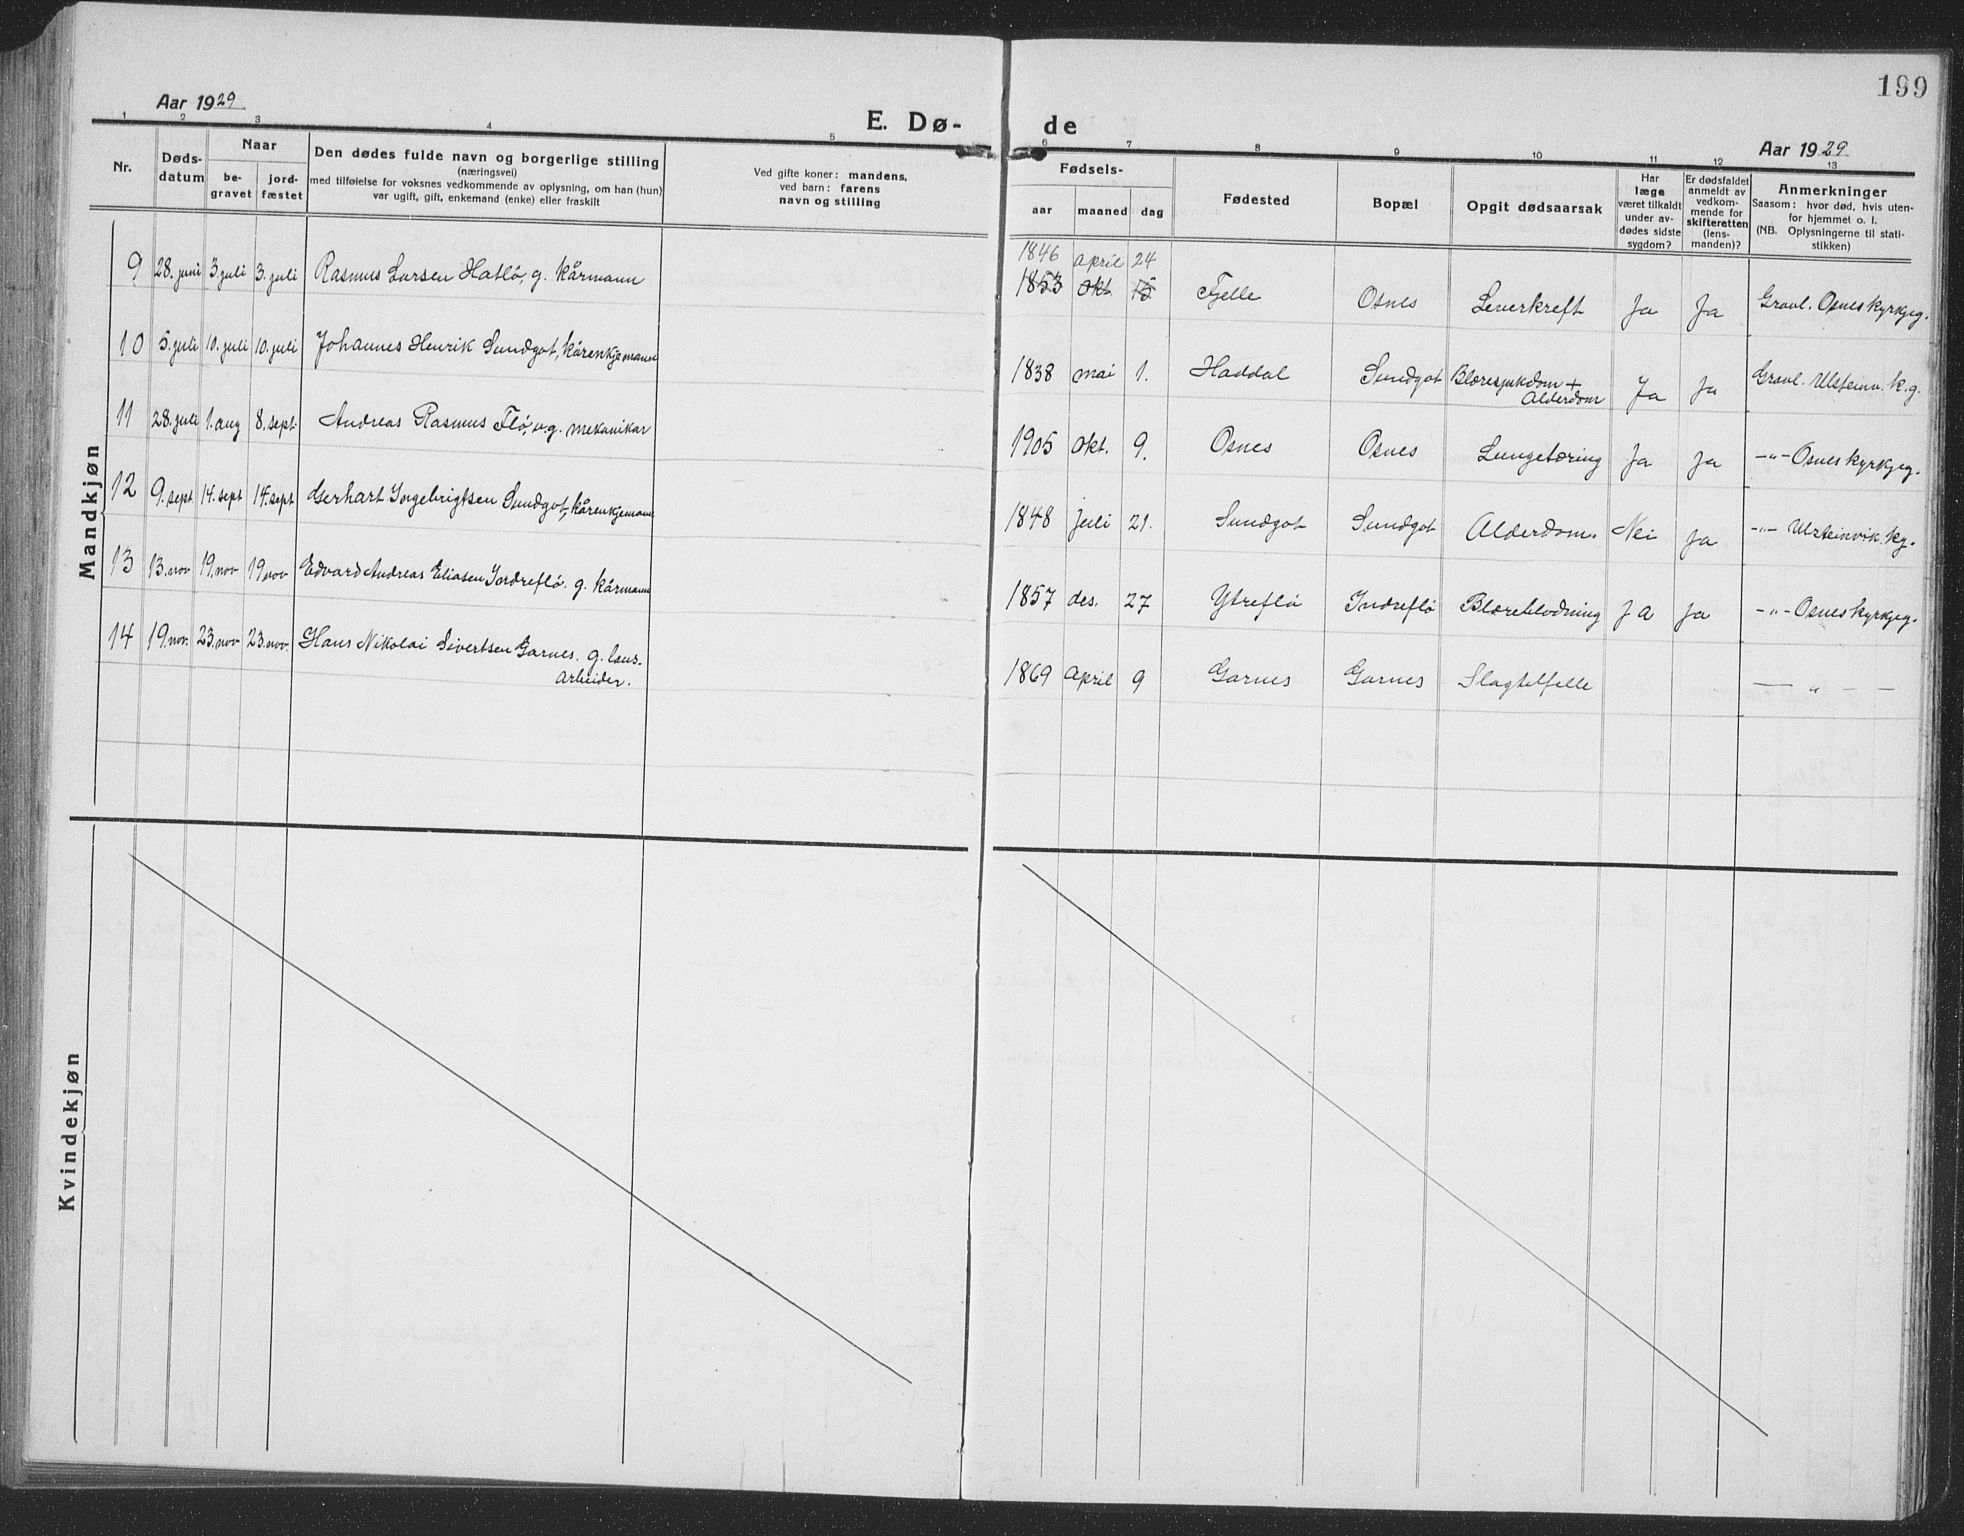 199
Aar 1929
E. Dø-
de
Aar 1929
1 2 3 4 5 6 7 8 9 10 11 12 13
Nr.
Døds-
datum
Naar
be-
gravet
jord-
fæstet
Den dødes fulde navn og borgerlige stilling
(næringsvei)
med tilføielse for voksnes vedkommende av oplysning, om han (hun)
var ugift, gift, enkemand (enke) eller fraskilt
Ved gifte koner: mandens,
ved barn: farens
navn og stilling
Fødsels-
aar maaned dag
Fødested
Bopæl
Opgit dødsaarsak
Har
læge
været tilkaldt
under av-
dødes sidste
sygdom?
Er dødsfaldet
anmeldt av
vedkom-
mende for
skifteretten
(lens-
manden)?
Anmerkninger
Saasom: hvor død, hvis uten-
for hjemmet o. l.
(NB. Oplysningerne til stati-
stikken)
Mandkjøn
1846 april 24
9 28. juni 3. juli 3. juli Rasmus Larsen Hatlö, g. kårmann 1853 okt. 15 Fjelle Osnes Leverkreft Ja Ja Gravl. Osnes kyrkjeg.
10 5. juli 10. juli 10. juli Johannes Henrik Sundgot, kårenkjemann 1838 mai 1. Haddal Sundgot Blæresjukdom + Ja Ja Gravl. Ulsteinv. k.g.
Alderdom
11 28. juli 1. aug 8. sept. Andreas Rasmus Flö, u.g. mekanikar 1905 okt. 9. Osnes Osnes Lungetæring Ja Ja -"- Osnes kyrkjeg.
12 9. sept 14. sept 14. sept Gerhart Ingebrigtsen Sundgot, kårenkjemann 1848 juli 21. Sundgot Sundgot Alderdom. Nei Ja -"- Ulsteinvik. kg.
13 13. nov 19. nov 19 nov Edvard Andreas Eliasen Indreflö. g. kårmann 1857 des. 27 Ytreflö Indreflö Blæreblodning Ja Ja -"- Osnes kyrkjeg.
14 19. nov. 23. nov 23. nov. Hans Nikolai Sivertsen Garnes. g. laus- 1869 april 9 Garnes Garnes Slagtelfelle — " — —
arbeider.
Kvindekjøn